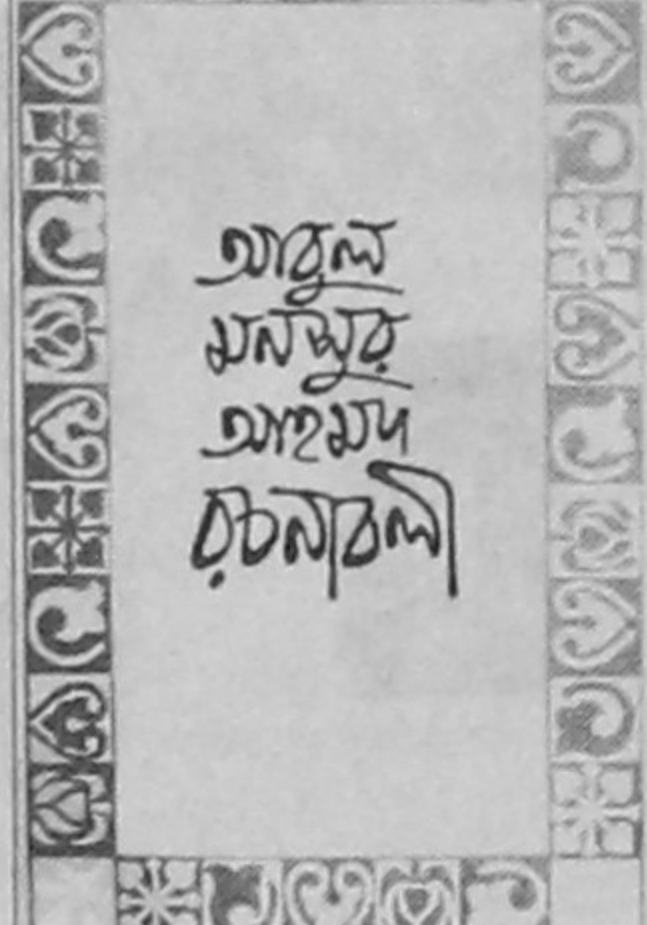 আবুল
মনসুর
আহমদ
রচনাবলী